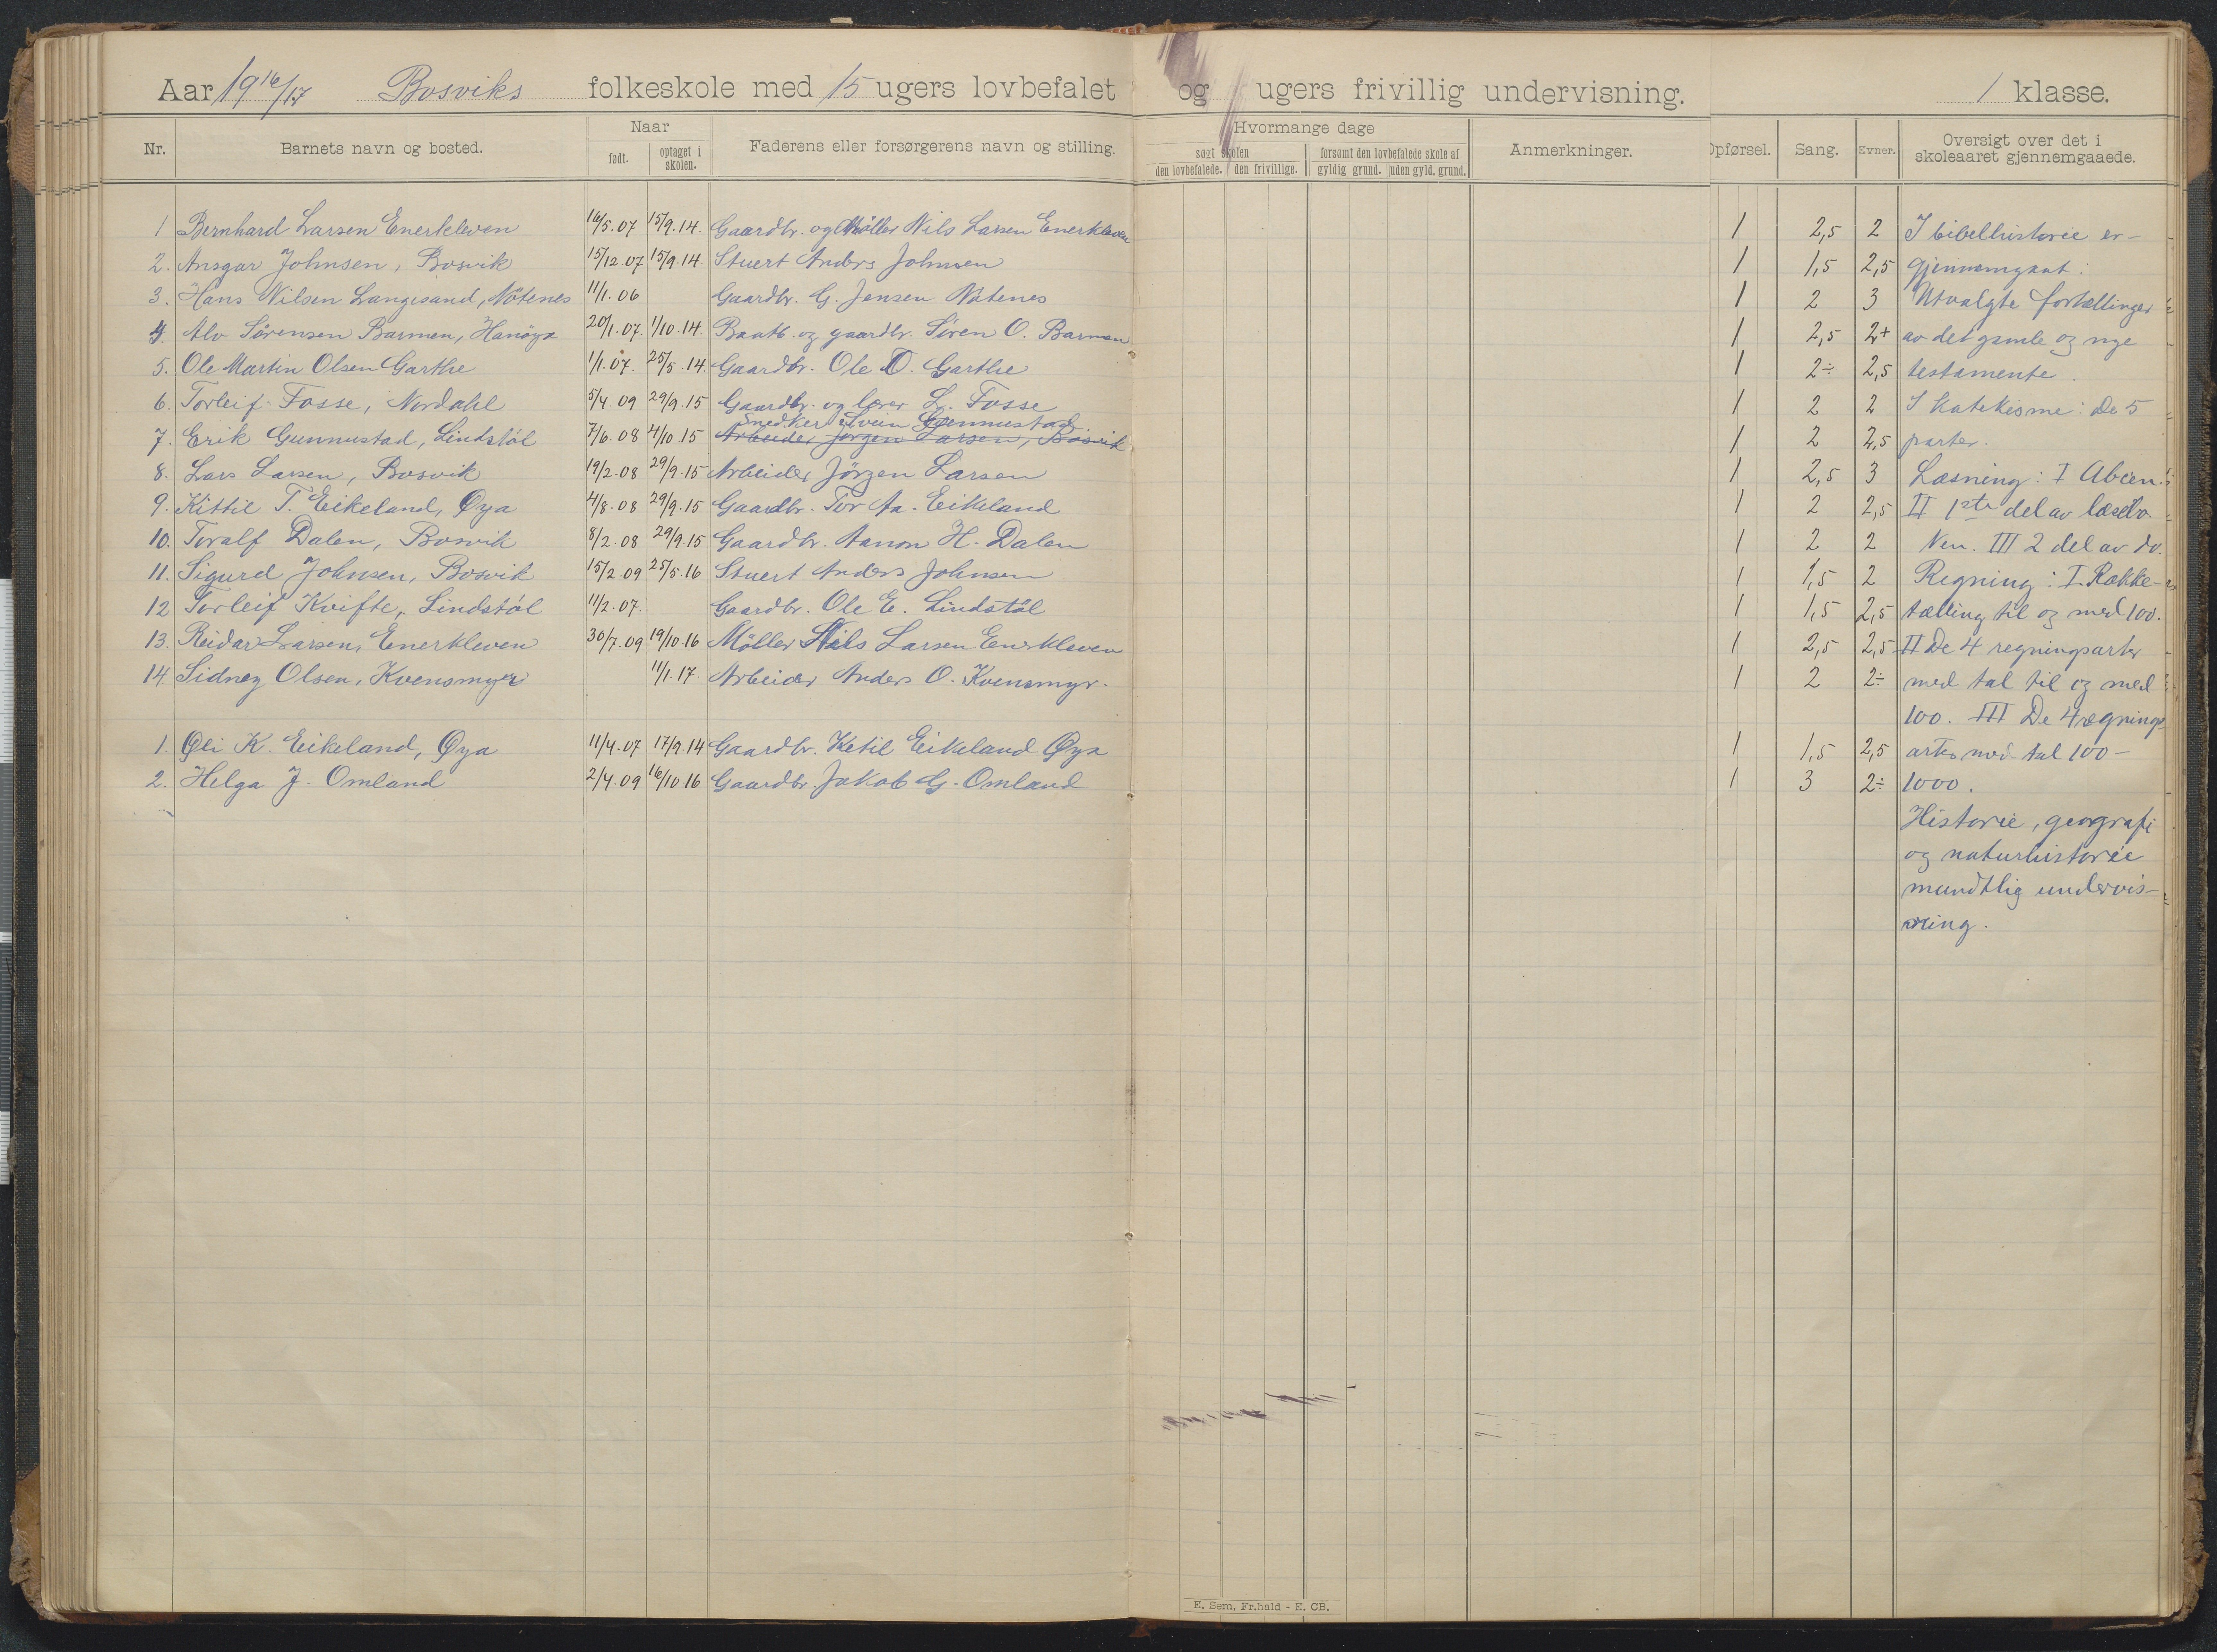 Aar 19 16/17 Bosviks folkeskole med 15 ugers lovbefalet og ugers frivillig undervisning. 1 klasse.
Nr. Barnets navn og bosted. Naar født. optaget i skolen. Faderens eller forsørgerens navn og stilling. Hvormange dage søgt skolen den lovbefalede. den frivillige. forsømt den lovbefalede skole af gyldig grund. uden gyld. grund. Anmerkninger. Opførsel. Sang. Evner. Oversigt over det i skoleaaret gjennemgaaede.
1 Bernhard Larsen Enerkleven 16/5.07 15/9.14. Gaardbr. og Møller Nils Larsen Enerkleven 1 2,5 2 I bibelhistorie er
2. Ansgar Johnsen, Bosvik 15/12.07 15/9.14. Stuert Anders Johnsen 1 1,5 2,5 gjennemgaat:
3. Hans Nilsen Langesand, Nötenes 11/1.06 Gaardbr. G. Jensen Nötenes 1 2 3 Utvalgte fortællinger
4. Alv Sörensen Barmen, Hanöya 20/1.07. 1/10.14. Baatb. og gaardbr. Sören O. Barmen 1 2,5 2+ av det gamle og nye
5. Ole Martin Olsen Garthe 1/1.07. 25/5.14. Gaardbr. Ole O. Garthe 1 2÷ 2,5 testamente.
6. Torleif Fosse, Nordahl 5/4.09 29/9.15 Gaardbr. og lærer L. Fosse 1 2 2 I Katekisme: De 5
Snedker Svein Gjennustad
7. Erik Gunnustad, Lindstöl 7/6.08 4/10.15 Arbeider Jörgen Larsen, Bosvik 1 2 2,5 parter.
8. Lars Larsen, Bosvik 19/2.08 29/9.15 Arbeider Jörgen Larsen 1 2,5 3 Læsning: I Abcen.
9. Kittil T. Eikeland, Øya 4/8.08 29/9.15 Gaardbr. Tor Aa. Eikeland 1 2 2,5 II 1ste del av læseb.
10. Toralf Dalen, Bosvik 8/2.08 29/9.15 Gaardbr. Aanon H. Dalen 1 2 2 III 2 del av do.
11. Sigurd Johnsen, Bosvik 15/2.09 25/5.16 Stuert Anders Johnsen 1 1,5 2 Regning: I. Række-
12 Torleif Kvifte, Lindstöl 11/2.07. Gaardbr. Ole E. Lindstöl 1 1,5 2,5 tælling til og med 100.
13. Reidar Larsen, Enerkleven 30/7.09 19/10.16 Möller Nils Larsen Enerkleven 1 2,5 2,5 II De 4 regningsarter
14. Sidney Olsen, Kvensmyr 11/1.17. Arbeider Anders O. Kvensmyr. 1 2 2÷ med tal til og med
100. III De 4 regnings
1. Oli K. Eikeland, Øya 11/4.07 17/9.14 Gaardbr. Ketil Eikeland Øya 1 1,5 2,5 arter med tal 100-
2. Helga J. Omland 2/4.09 16/10.16 Gaardbr. Jakob G. Omland 1 3 2÷ 1000.
Historie, geografi
og naturhistorie
mundtlig undervis-
ning.
E. Sem, Fr.hald - E. CB.